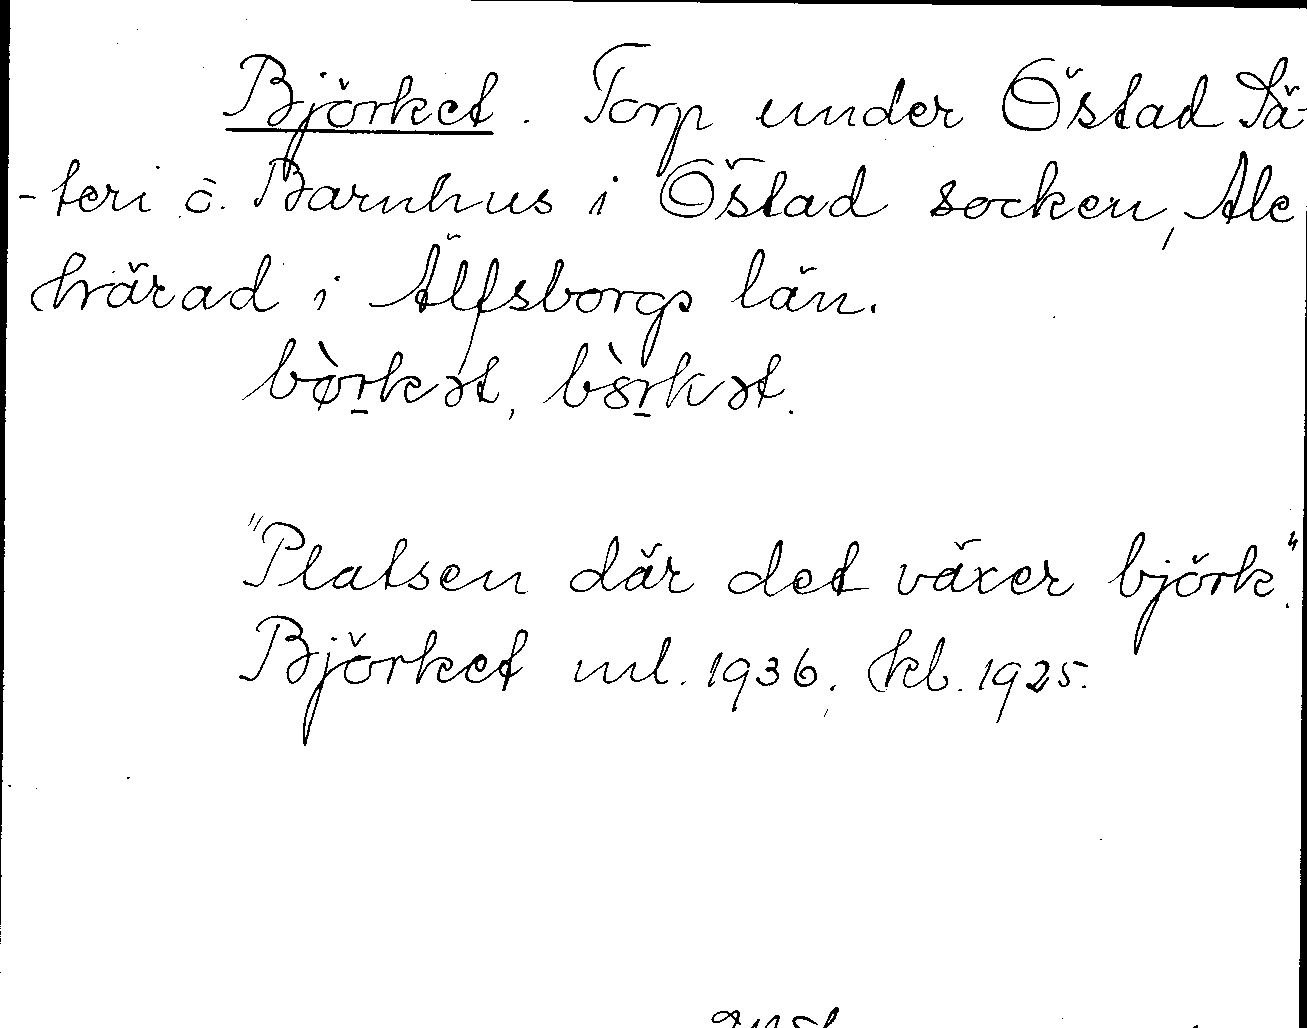 Björket. Torp under Östad Sä-
-teri o. Barnhus i Östad socken, Ale
härad i Älfsborgs län.
bø̀rkət, bɔ̀rkət.
"Platsen där det växer björk".
Björket ml. 1936. kb. 1925.